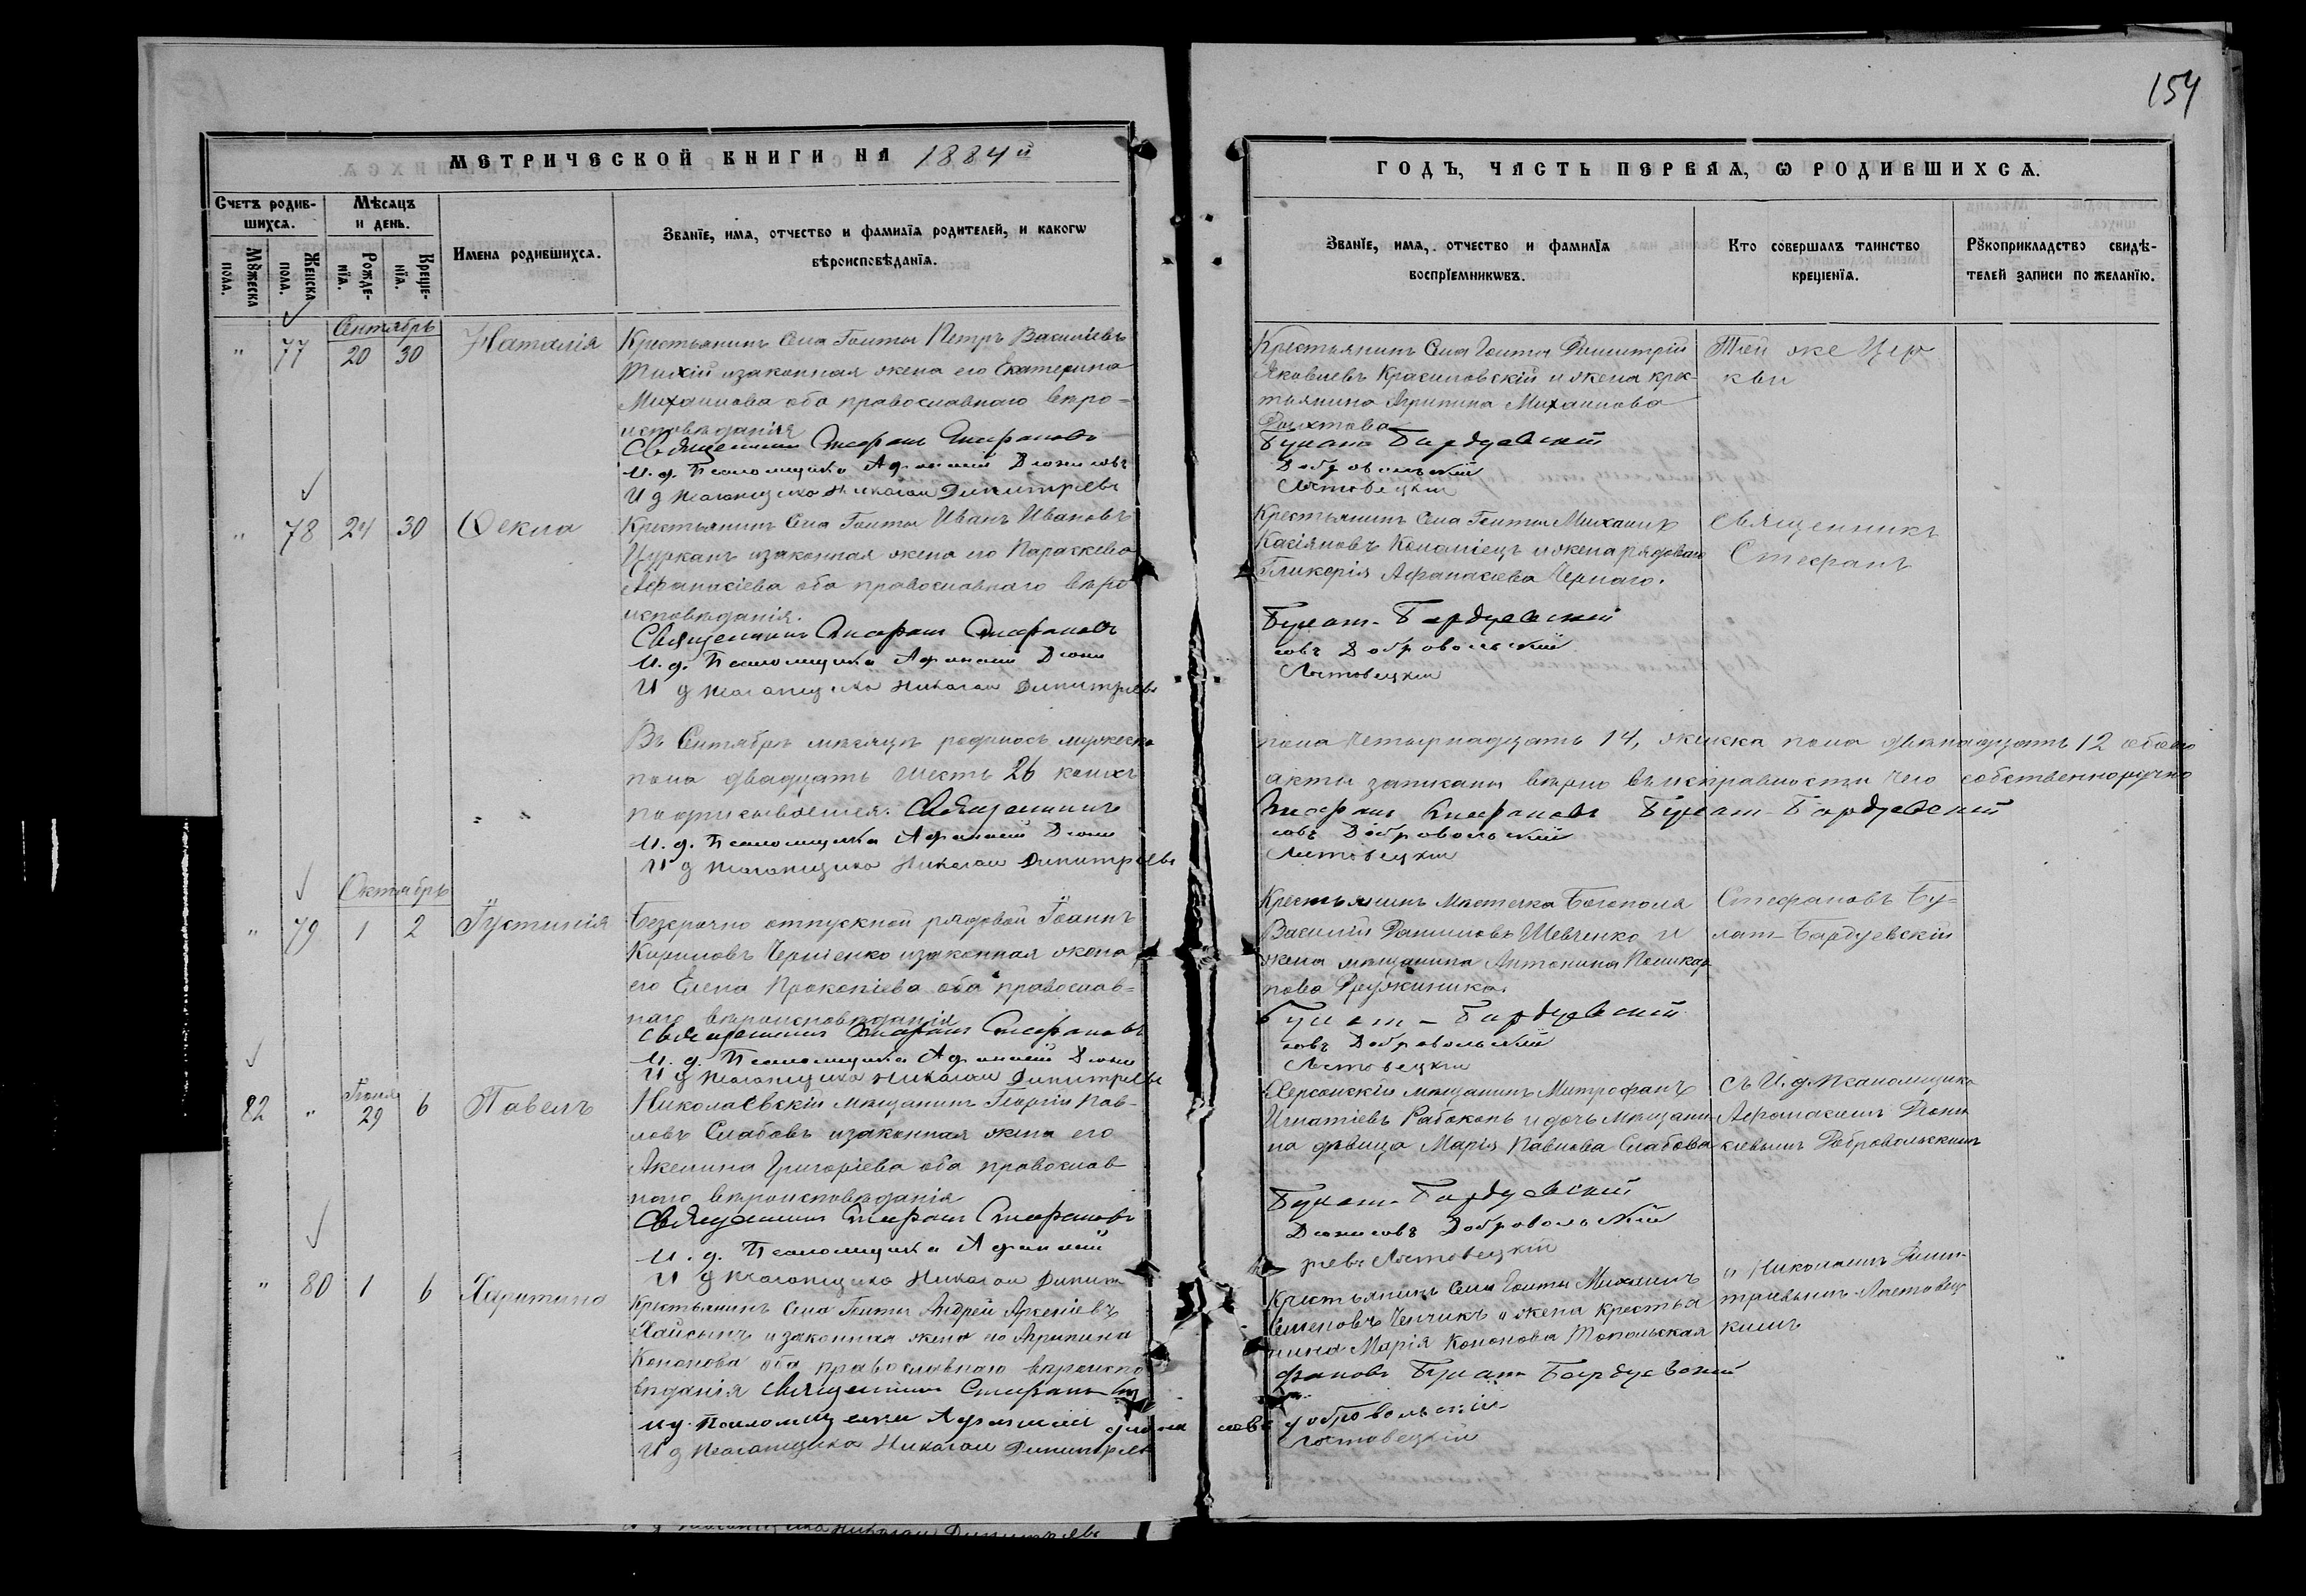 154
МЕТРИЧЕСКОЙ КНИГИ НА 1884й
ГОДЪ, ЧАСТЬ ПЕРВАЯ, Ѡ РОДИВШИХСѦ.
Счетъ родив-
шихсѧ.
Мѣсѧцъ
и день.
Имена родившихсѧ.
Званїе, имѧ, отчество и фамилїѧ родителей, и какогѡ
вѣроисповѣданїѧ.
Мꙋжеска
пола.
Женска
пола.
Рожде-
нїѧ.
Креще-
нїѧ.
Званїе, имѧ, отчество и фамилїѧ
воспрїемникѡвъ.
Кто совершалъ таинство
крещенїѧ.
Рꙋкоприкладство свидѣ-
телей записи по желанїю.
Сентябрь
" 77 20 30 Наталія
Крестьянинъ Села Голты Петръ Василіевъ
Тихій изаконная жена его Екатерина
Михаилова оба православнаго вѣро=
исповѣданія
Священникъ Стефанъ Стефановъ
И. д. Псаломщика Афанасій Діонисовъ
И д Псаломщика Николай Димитріевъ
Крестьянинъ Села Голты Димитрій
Яковлевъ Красиловскій и жена крес-
тьянина Агрипина Михаилова
Булатъ-Бардуевскій
Добровольскій
Лястовецкій
Той же Цер
кви
" 78 24 30 Ѳекла
Крестьянинъ Села Голты Иванъ Ивановъ
Цурканъ изаконная жена его Параскева
Афанасіева оба православнаго вѣро
исповѣданія.
Священникъ Стефанъ Стефановъ
И. д. Псаломщика Афанасій Діони
И д Псаломщика Николай Димитріевъ
Крестьянинъ Села Голты Михаилъ
Касіяновъ Коломіецъ и жена рядоваго
Гликерія Афанасіева Чернаго.
Булатъ-Бардуевскій
совъ Добровольскій
Лястовецкій
Священникъ
Стефанъ
Въ Сентябрѣ мѣсяцѣ родилось мужеска
пола четырнадцать 14, женска пола двѣнадцать 12 обоего
пола двадцать шесть 26 коихъ
акты записаны вѣрно въ исправности чего собственноручно
подписываемся. Священникъ
Стефанъ Стефановъ Булатъ-Бардуевскій
И. д. Псаломщика Афанасій Діони
совъ Добровольскій
И д Псаломщика Николай Димитріевъ
Лястовецкій
Октябрь
" 79 1 2 Іустинія
Безсрочно отпускной рядовой Іоаннъ
Кириловъ Черніенко изаконная жена
его Елена Прокопіева оба православ=
наго вѣроисповѣданія
Священникъ Стефанъ Стефановъ
И. д. Псаломщика Афанасій Діони
И д Псаломщика Николай Димитріевъ
Крестьянинъ Мѣстечка Богополя
Василій Даниловъ Шевченко и
жена мѣщанина Антонина Поликар
пова Дружиника.
Булатъ-Бардуевскій
совъ Добровольскій
Лястовецкій
Стефановъ Бу=
латъ-Бардуевскій
Іюля
82 " 29 6 Павелъ
Николаевскій мѣщанинъ Георгій Пав-
ловъ Слабовъ изаконная жена его
Акелина Григоріева оба православ
наго вѣроисповѣданія
Священникъ Стефанъ Стефановъ
И. д. Псаломщика Афанасій
И д Псаломщика Николай Димит
Херсонскій мѣщанинъ Митрофанъ
Игнатіевъ Рабоконь и дочь мѣщани
на дѣвица Марія Павлова Слабова
Булатъ-Бардуевскій
Діонисовъ Добровольскій
ріевъ Лястовецкій
съ И. д. Псаломщика
Афанасіемъ Діони
сіевымъ Добровольскимъ
" 80 1 6 Харитина
Крестьянинъ Села Голты Андрей Арсеніевъ
Хайсынъ изаконная жена его Агрипина
Кононова оба православнаго вѣроиспо
вѣданія Священникъ Стефанъ Сте
ид. Псаломщика Афанасій Діони
И д Псаломщика Николай Димитріевъ
Крестьянинъ Села Голты Михаилъ
Семеновъ Чепчикъ и жена крестья
нина Марія Кононова Топольская
фановъ Булатъ Бардуевскій
совъ Добровольскій
Лястовецкій
и Николаемъ Дими-
тріевымъ Лястовец
кимъ